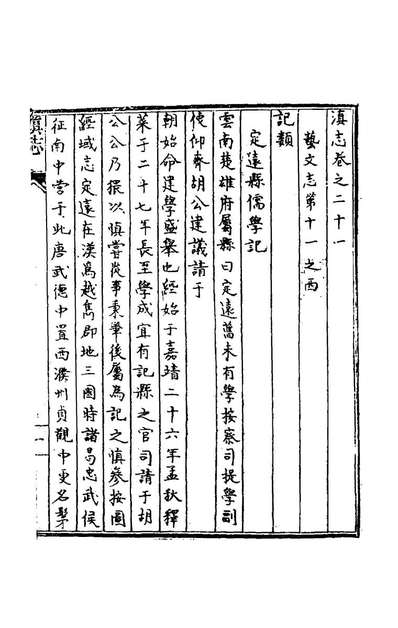 滇志卷之二十一
藝文志第十一之四
記類
定遠縣儒學記
雲南楚雄府屬縣曰定遠舊未有學按察司提學副
使仰齋胡公建議請于
朝始命建學盛舉也經始于嘉靖二十六年孟秋釋
菜于二十七年長至學成宜有記縣之官司請于胡
公公乃猥以慎嘗從事秉筆後屬為記之慎參按圖
經域志定遠在漢為越雋郡地三國時諸葛忠武侯
征南中嘗于此唐武德中置西濮州貞觀中更名髳
滇志